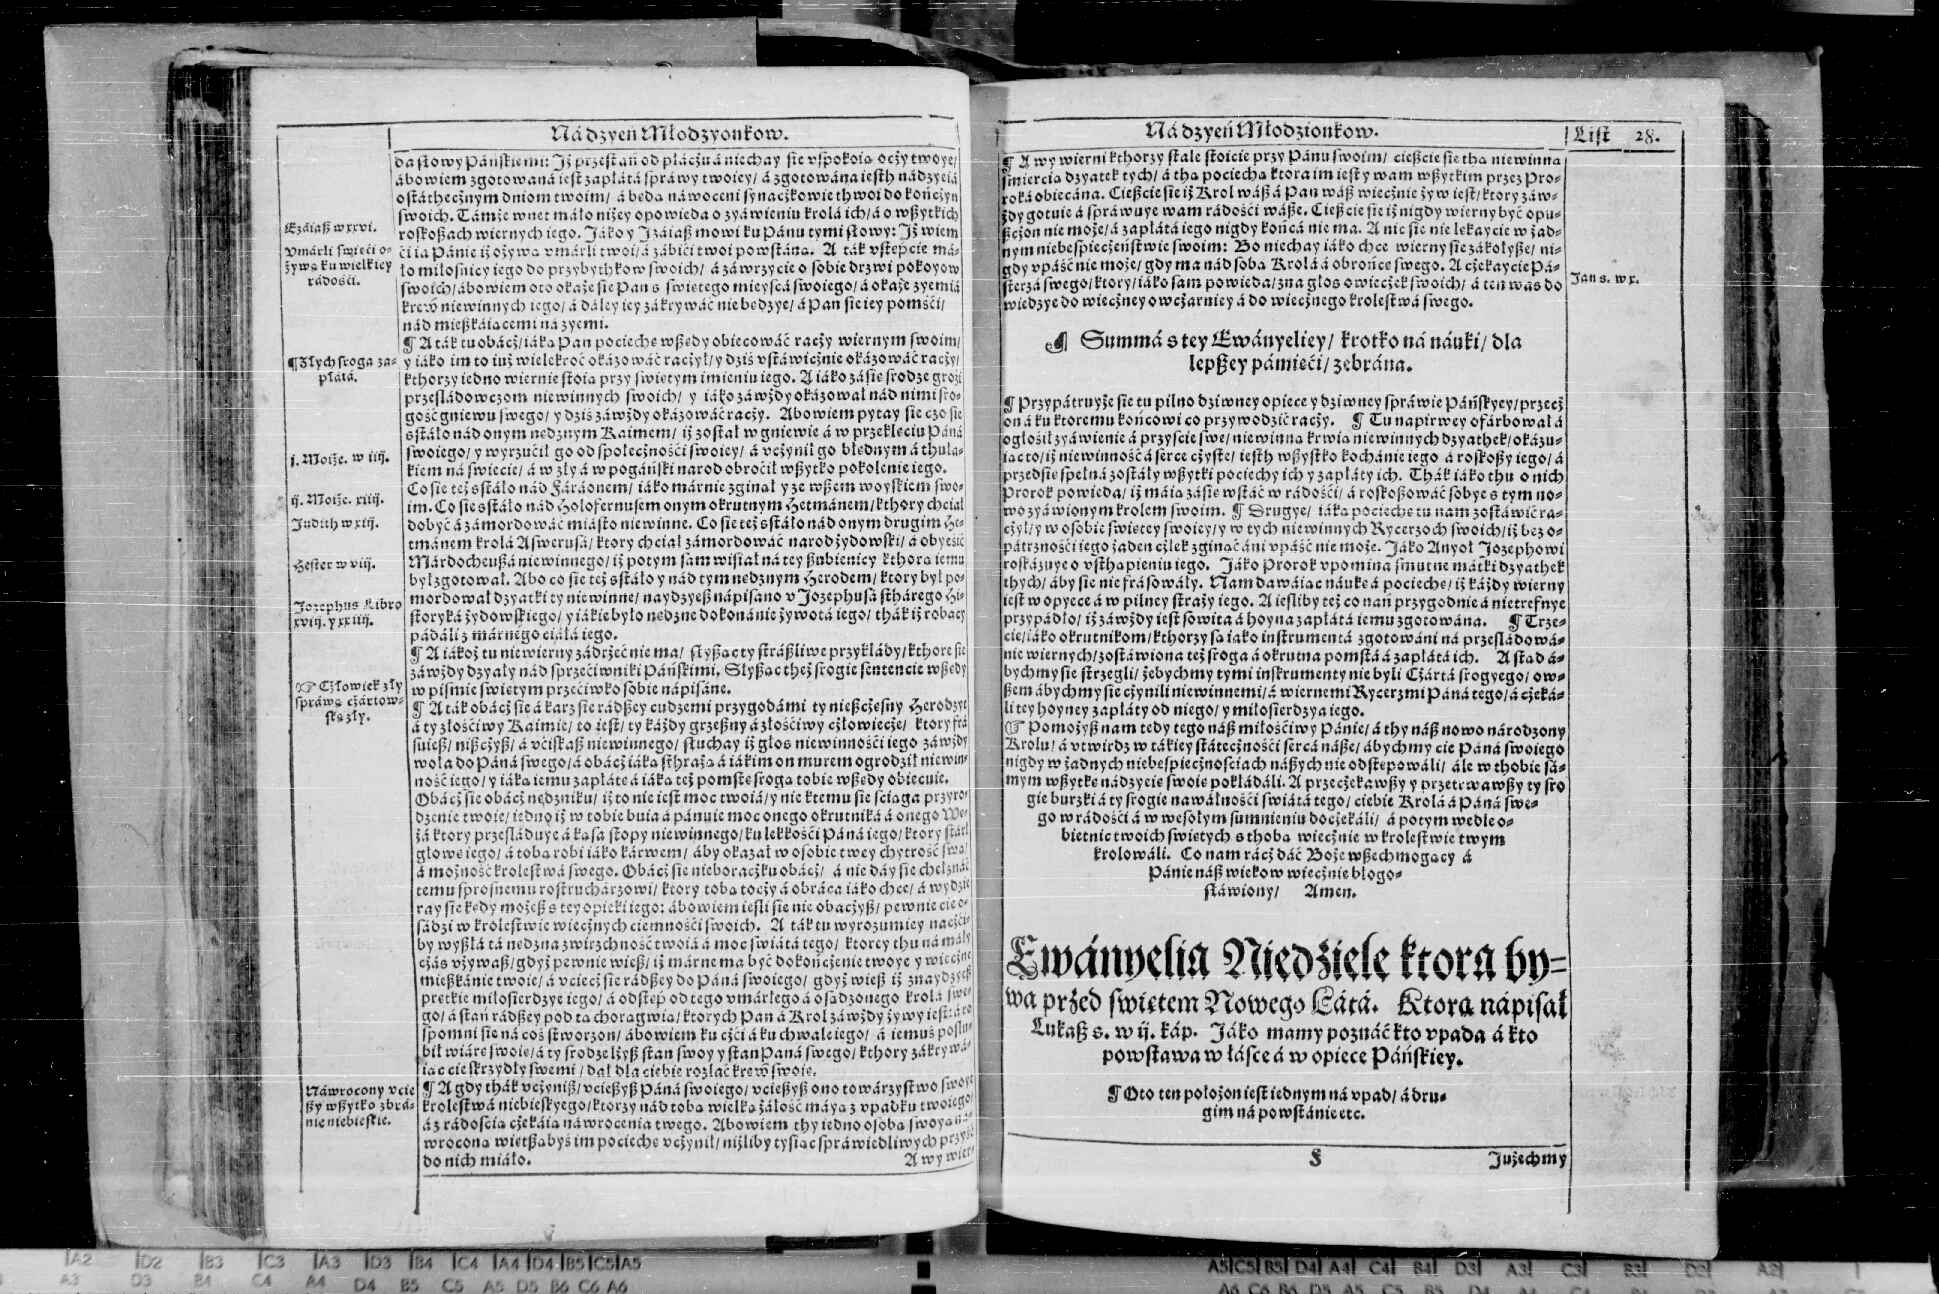 Ná dzyeń Młodzyonkow.
da słowy Páńskiemi: Iż przestań od płáczu á niechay sie vspokoią oczy twoye/
ábowiem zgotowaná iest zapłátá spráwy twoiey/ á zgotowána iesth nádzyeiá
ostáthecznym dniom twoim/ á będą náwoceni synaczkowie thwoi do kończyn
swoich. Támże wnet máło niżey opowieda o zyáwieniu krolá ich/ á o wszytkich
roskoszach wiernych iego. Iáko y Izáiasz mowi ku Pánu tymi słowy: Iż wiem
ći ia Pánie iż ożywą vmárli twoi/ á zábići twoi powstáną. A ták vstępcie má-
ło miłosnicy iego do przybythkow swoich/ á záwrzycie o sobie drzwi pokoyow
swoich/ ábowiem oto okaże sie Pan s swiętego mieyscá swoiego/ á okaże zyemiá
krew niewinnych iego/ á dáley iey zákrywáć nie będzye/ á Pan sie iey pomśći/
nád mieszkáiącemi ná zyemi.
¶ A ták tu obácz/ iáką Pan pociechę wszędy obiecowáć raczy wiernym swoim/
y iáko im to iuż wielekroć okázowáć raczył/ y dziś vstáwicznie okázowáć raczy/
kthorzy iedno wiernie stoią przy swiętym imieniu iego. A iáko zásię srodze grozi
prześládowczom niewinnych swoich/ y iáko záwżdy okázował nád nimi sro-
gość gniewu swego/ y dziś záwżdy okázowáć raczy. Abowiem pytay sie czo sie
sstáło nád onym nędznym Kaimem/ iż został w gniewie á w przeklęciu Páná
swoiego/ y wyrzućił go od społecznośći swoiey/ á vczynił go błędnym á thuła-
kiem ná swiecie/ á w zły á w pogáński narod obroćił wszytko pokolenie iego.
Co sie też sstáło nád Faráonem/ iáko márnie zginął y ze wszem woyskiem swo-
im. Co sie sstáło nád Holofernusem onym okrutnym Hetmánem/ kthory chciał
dobyć á zámordowáć miásto niewinne. Co sie też sstáło nád onym drugim He-
tmánem krolá Aswerusá/ ktory chciał zámordowáć narod żydowski/ á obyeśić
Márdocheuszá niewinnego/ iż potym sam wisiał ná tey szubienicy kthorą iemu
był zgotował. Abo co sie też sstáło y nád tym nędznym Herodem/ ktory był po-
mordował dzyatki ty niewinne/ naydzyesz nápisano v Iozephusá sthárego Hi-
storyká żydowskiego/ y iákie było nędzne dokonánie żywotá iego/ thák iż robacy
pádáli z márnego ciáłá iego.
¶ A iákoż tu niewierny zádrżeć nie ma/ słysząc ty strászliwe przykłády/ kthore sie
záwżdy dzyały nád sprzećiwniki Páńskimi. Słysząc theż srogie sentencie wszędy
w pismie swiętym przećiwko sobie nápisáne.
¶ A ták obácz sie á karz sie rádszey cudzemi przygodámi ty nieszczęsny Herodzye
á ty złośćiwy Kaimie/ to iest/ ty káżdy grzeszny á złośćiwy człowiecze/ ktory frá
suiesz/ niszczysz/ á vćiskasz niewinnego/ słuchay iż głos niewinnośći iego záwżdy
woła do Páná swego/ á obácz iáką sthrażą á iákim on murem ogrodził niewin-
ność iego/ y iáką iemu zapłátę á iáką też pomstę srogą tobie wszędy obiecuie.
Obácz sie obácz nędzniku/ iż to nie iest moc twoiá/ y nie k temu sie ściąga przyro-
dzenie twoie/ iedno iż w tobie buia á pánuie moc onego okrutniká á onego We-
żá ktory prześláduye á kąsa stopy niewinnego/ ku lekkośći Páná iego/ ktory stárł
głowę iego/ á tobą robi iáko kárwem/ áby okazał w osobie twey chytrość swą/
á możność krolestwá swego. Obácz sie nieboraczku obácz/ á nie day sie chełznáć
temu sprosnemu rostruchárzowi/ ktory tobą toczy á obráca iáko chce/ á wydzie
ray sie kędy możesz s tey opieki iego: ábowiem iesli sie nie obaczysz/ pewnie cie o-
sádzi w krolestwie wiecznych ciemnośći swoich. A ták tu wyrozumiey ná coć-
by wyszłá tá nędzna zwirzchność twoiá á moc swiátá tego/ ktorey thu ná máły
czás vżywasz/ gdyż pewnie wiesz/ iż márne ma być dokończenie twoye y wieczne
mieszkánie twoie/ á vciecz sie rádszey do Páná swoiego/ gdyż wiesz iż znaydzyesz
prętkie miłosierdzye iego/ á odstęp od tego vmárłego á osądzonego krolá swe-
go/ á stań rádszey pod tą chorągwią/ ktorych Pan á Krol záwżdy żywy iest: á to
spomni sie ná coś stworzon/ ábowiem ku czći á ku chwale iego/ á iemuś poślu-
bił wiárę swoię/ á ty srodze lżysz stan swoy y stan Páná swego/ kthory zákrywá-
iąc cie skrzydły swemi/ dał dla ciebie rozlać krew swoię.
¶ A gdy thák vczynisz/ vcieszysz Páná swoiego/ vcieszysz ono towárzystwo swoye
krolestwá niebieskyego/ ktorzy nád tobą wielką żáłość máyą z vpadku twoiego/
á z rádością czekáią náwrocenia twego. Abowiem thy iedno osobą swoyą ná-
wroconą więtszą byś im pociechę vczynił/ niżliby tysiąc spráwiedliwych przyść
do nich miáło.
A wy wier-
Ezáiasz w xxvi.
Vmárli swięći o-
żywą ku wielkiey
rádośći.
¶ Złych sroga za-
płátá.
j. Moiże. w iiij.
ij. Moiże. xiiij.
Iudith w xiij.
Hester w viij.
Iozephus Libro
xvij. y xxiiij.
☞ Człowiek zły
spráwą czártow-
ską zły.
Náwrocony vcie
szy wszytko zbrá-
nie niebieskie.
Ná dzyeń Młodzionkow.
List 28.
¶ A wy wierni kthorzy stale stoicie przy Pánu swoim/ cieszcie sie thą niewinną
śmiercią dzyatek tych/ á tha pociechá ktora im iest y wam wszytkim przez Pro-
roká obiecána. Cieszcie sie iż Krol wász á Pan wász wiecznie żyw iest/ ktory záw-
żdy gotuie á spráwuye wam rádośći wásze. Cieszcie sie iż nigdy wierny być opu-
szczon nie może/ á zapłátá iego nigdy końcá nie ma. A nic sie nie lękaycie w żad-
nym niebespieczeństwie swoim: Bo niechay iáko chce wierny sie zákołysze/ ni-
gdy vpáść nie może/ gdy ma nád sobą Krolá á obrońcę swego. A czekaycie Pá-
sterzá swego/ ktory/ iáko sam powieda/ zna głos owieczek swoich/ á ten was do
wiedzye do wieczney owczárniey á do wiecznego krolestwá swego.
Ian s. w x.
¶ Summá s tey Ewányeliey/ krotko ná náuki/ dla
lepszey pámięći/ zebrána.
¶ Przypátruyże sie tu pilno dziwney opiece y dziwney spráwie Páńskyey/ przecż
on á ku ktoremu końcowi co przywodzić raczy. ¶ Tu napirwey ofárbował á
ogłosił zyáwienie á przyscie swe/ niewinną krwią niewinnych dzyathek/ okázu-
iąc to/ iż niewinność á serce czyste/ iesth wszystko kochánie iego á roskoszy iego/ á
przedsię spełná zostáły wszytki pociechy ich y zapłáty ich. Thák iáko thu o nich
Prorok powieda/ iż máią zásię wstáć w rádośći/ á roskoszowáć sobye s tym no-
wo zyáwionym krolem swoim. ¶ Drugye/ iáką pociechę tu nam zostáwić ra-
czył/ y w osobie swiętey swoiey/ y w tych niewinnych Rycerzoch swoich/ iż bez o-
pátrznośći iego żaden człek zginąć áni vpáść nie może. Iáko Anyoł Iozephowi
roskázuye o vsthąpieniu iego. Iáko Prorok vpomina smutne mátki dzyathek
thych/ áby sie nie frásowáły. Nam dawáiąc náukę á pociechę/ iż káżdy wierny
iest w opyece á w pilney straży iego. A iesliby też co nań przygodnie á nietrefnye
przypádło/ iż záwżdy iest sowita á hoyna zapłátá iemu zgotowána. ¶ Trze-
cie/ iáko okrutnikom/ kthorzy są iáko instrumentá zgotowáni ná prześládowá-
nie wiernych/ zostáwiona też sroga á okrutna pomstá á zapłátá ich. A stąd á-
bychmy sie strzegli/ żebychmy tymi instrumenty nie byli Czártá srogyego/ ow-
szem ábychmy sie czynili niewinnemi/ á wiernemi Rycerzmi Páná tego/ á czeká-
li tey hoyney zapłáty od niego/ y miłosierdzya iego.
☞ Pomożysz nam tedy tego nász miłośćiwy Pánie/ á thy nász nowo národzony
Krolu/ á vtwirdź w tákiey státecznośći sercá násze/ ábychmy cie Páná swoiego
nigdy w żadnych niebespiecznościach nászych nie odstępowáli/ ále w thobie sá-
mym wszytkę nádzyeię swoię pokłádáli. A przeczekawszy y przetrwawszy ty sro
gie burzki á ty srogie nawáłnośći swiátá tego/ ciebie Krolá á Páná swe-
go w rádośći á w wesołym sumnieniu doczekáli/ á potym wedle o-
bietnic twoich swiętych s thobą wiecznie w krolestwie twym
krolowáli. Co nam rácz dáć Boże wszechmogący á
Pánie nász wiekow wiecznie błogo-
słáwiony/ Amen.
Ewányelia Niedziele ktora by-
wa przed swiętem Nowego Látá. Ktorą nápisał
Lukasz s. w ij. káp. Iáko mamy poznáć kto vpada á kto
powstawa w łásce á w opiece Páńskiey.
¶ Oto ten położon iest iednym ná vpad/ á dru-
gim ná powstánie etc.
Iużechmy